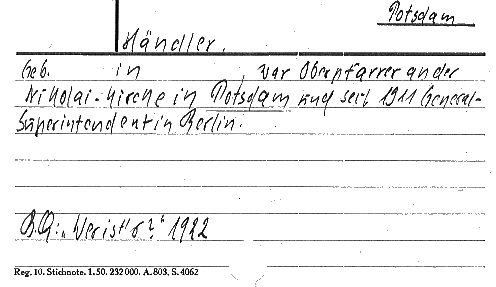 Potsdam
Händler.
Geb. in , war Oberpfarrer an der
Nikolai-Kirche in Potsdam und seit 1911 General-
Superintendent in Berlin.
B.Q.: „Wer ist's?" 1922
Reg. 10. Stichnote. 1. 50. 232 000. A. 803. S. 4062